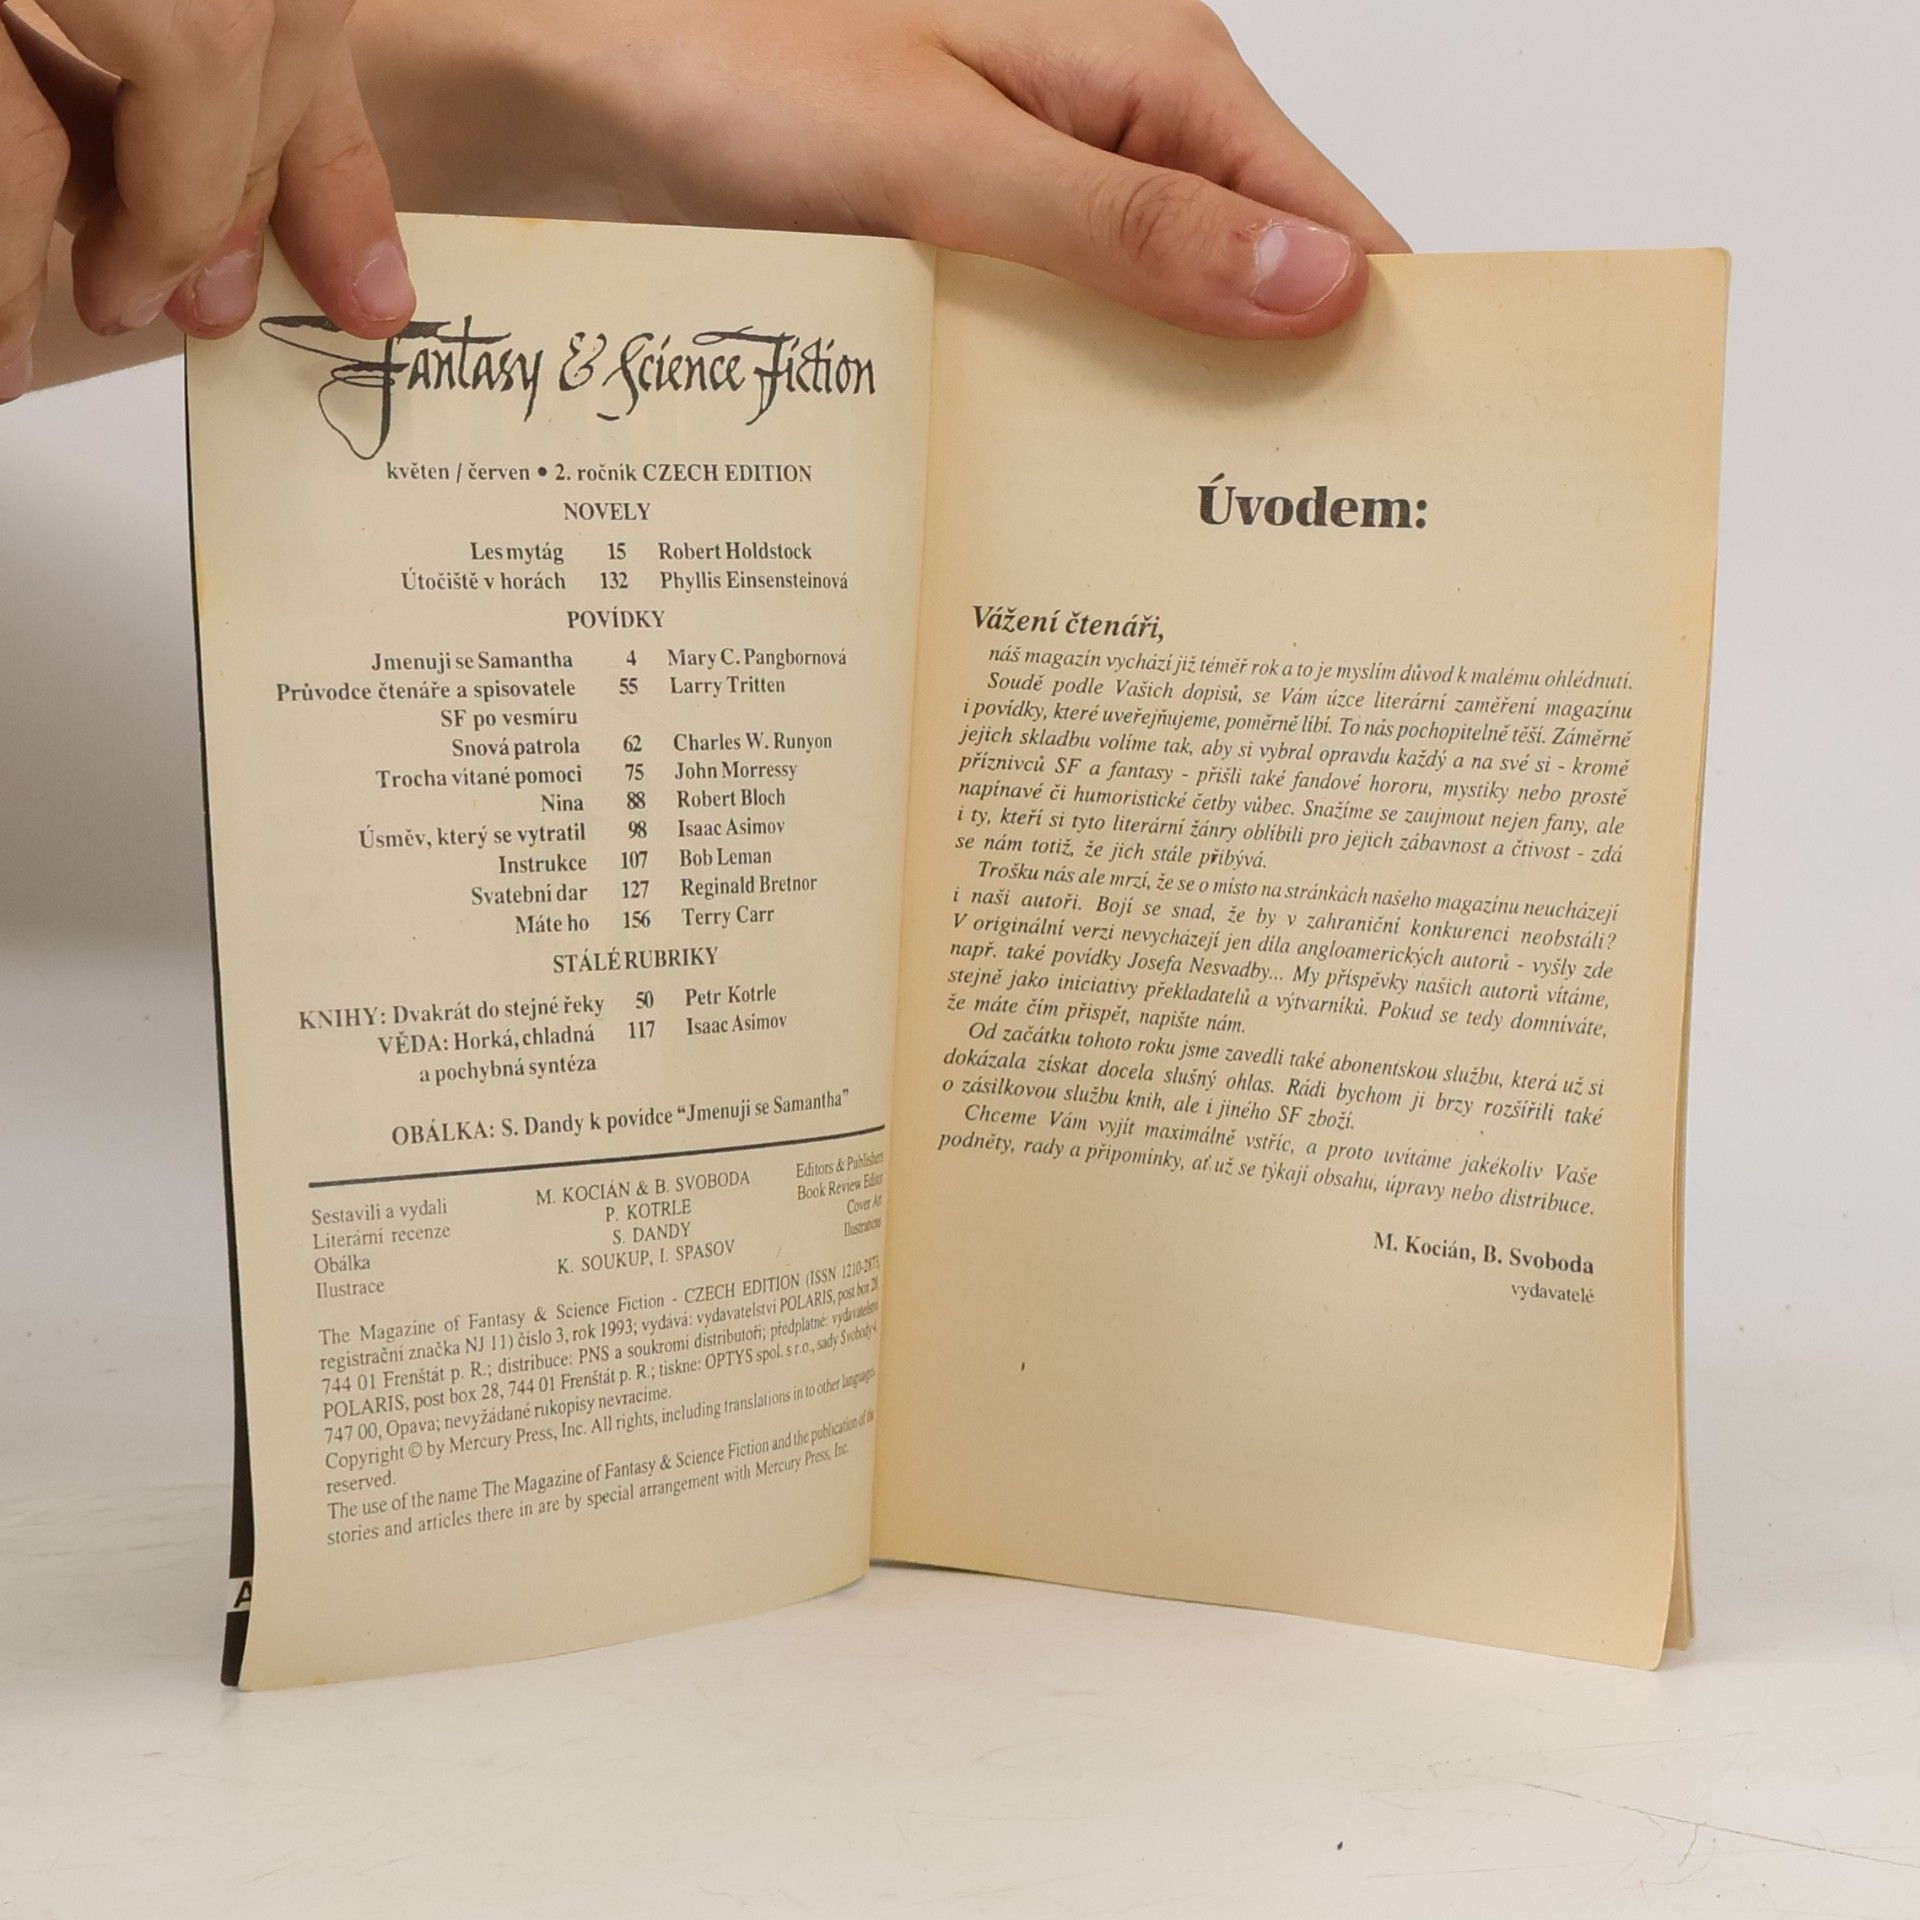 Fantasy & Science Fiction
květen / červen • 2. ročník CZECH EDITION
NOVELY
Les mytág 15 Robert Holdstock
Útočiště v horách 132 Phyllis Einsensteinová
POVÍDKY
Jmenuji se Samantha 4 Mary C. Pangbornová
Průvodce čtenáře a spisovatele 55 Larry Tritten
SF po vesmíru
Snová patrola 62 Charles W. Runyon
Trocha vítané pomoci 75 John Morressy
Nina 88 Robert Bloch
Úsměv, který se vytratil 98 Isaac Asimov
Instrukce 107 Bob Leman
Svatební dar 127 Reginald Bretnor
Máte ho 156 Terry Carr
STÁLÉ RUBRIKY
KNIHY: Dvakrát do stejné řeky 50 Petr Kotrle
VĚDA: Horká, chladná 117 Isaac Asimov
a pochybná syntéza
OBÁLKA: S. Dandy k povídce “Jmenuji se Samantha”
Sestavili a vydali M. KOCIÁN & B. SVOBODA Editors & Publishers
Literární recenze P. KOTRLE Book Review Editor
Obálka S. DANDY Cover Art
Ilustrace K. SOUKUP, I. SPASOV Ilustrations
The Magazine of Fantasy & Science Fiction - CZECH EDITION (ISSN 1210-2873,
registrační značka NJ 11) číslo 3, rok 1993; vydává: vydavatelství POLARIS, post box 28,
744 01 Frenštát p. R.; distribuce: PNS a soukromí distributoři; předplatné: vydavatelství
POLARIS, post box 28, 744 01 Frenštát p. R.; tiskne: OPTYS spol. s r.o., sady Svobody 4,
747 00, Opava; nevyžádané rukopisy nevracíme.
Copyright © by Mercury Press, Inc. All rights, including translations in to other languages
reserved.
The use of the name The Magazine of Fantasy & Science Fiction and the publication of the
stories and articles there in are by special arrangement with Mercury Press, Inc.
A
Úvodem:
Vážení čtenáři,
náš magazín vychází již téměř rok a to je myslím důvod k malému ohlédnutí.
Soudě podle Vašich dopisů, se Vám úzce literární zaměření magazínu
i povídky, které uveřejňujeme, poměrně líbí. To nás pochopitelně těší. Záměrně
jejich skladbu volíme tak, aby si vybral opravdu každý a na své si - kromě
příznivců SF a fantasy - přišli také fandové hororu, mystiky nebo prostě
napínavé či humoristické četby vůbec. Snažíme se zaujmout nejen fany, ale
i ty, kteří si tyto literární žánry oblíbili pro jejich zábavnost a čtivost - zdá
se nám totiž, že jich stále přibývá.
Trošku nás ale mrzí, že se o místo na stránkách našeho magazínu neucházejí
i naši autoři. Bojí se snad, že by v zahraniční konkurenci neobstáli?
V originální verzi nevycházejí jen díla angloamerických autorů - vyšly zde
např. také povídky Josefa Nesvadby... My příspěvky našich autorů vítáme,
stejně jako iniciativy překladatelů a výtvarníků. Pokud se tedy domníváte,
že máte čím přispět, napište nám.
Od začátku tohoto roku jsme zavedli také abonentskou službu, která už si
dokázala získat docela slušný ohlas. Rádi bychom ji brzy rozšířili také
o zásilkovou službu knih, ale i jiného SF zboží.
Chceme Vám vyjít maximálně vstříc, a proto uvítáme jakékoliv Vaše
podněty, rady a připomínky, ať už se týkají obsahu, úpravy nebo distribuce.
M. Kocián, B. Svoboda
vydavatelé